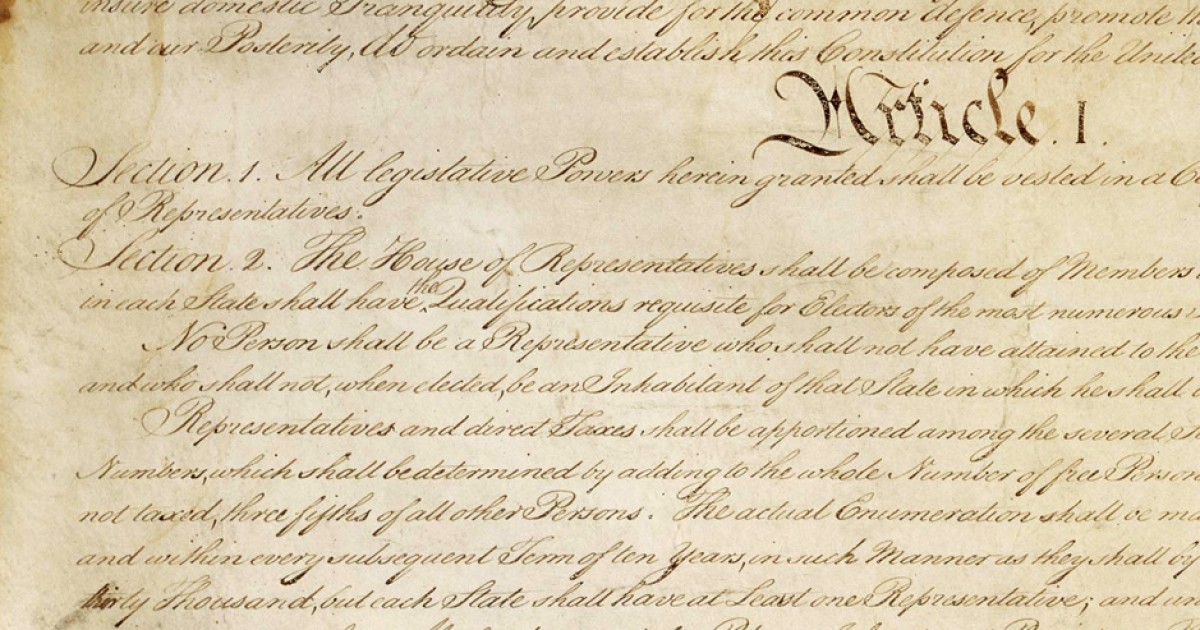 insure domestic Tranquility, provide for the common defence, promote
and our Posterity, do ordain and establish this Constitution for the United
Article. I.
Section. 1. All legislative Powers herein granted shall be vested in a
of Representatives.
Section. 2. The House of Representatives shall be composed of Members
in each State shall have the Qualifications requisite for Electors of the most numerous
No Person shall be a Representative who shall not have attained to the
and who shall not, when elected, be an Inhabitant of that State in which he shall
Representatives and direct Taxes shall be apportioned among the several
Numbers, which shall be determined by adding to the whole Number of free Person
not taxed, three fifths of all other Persons. The actual Enumeration shall be
and within every subsequent Term of ten Years, in such Manner as they shall by
thirty Thousand, but each State shall have at Least one Representative; and